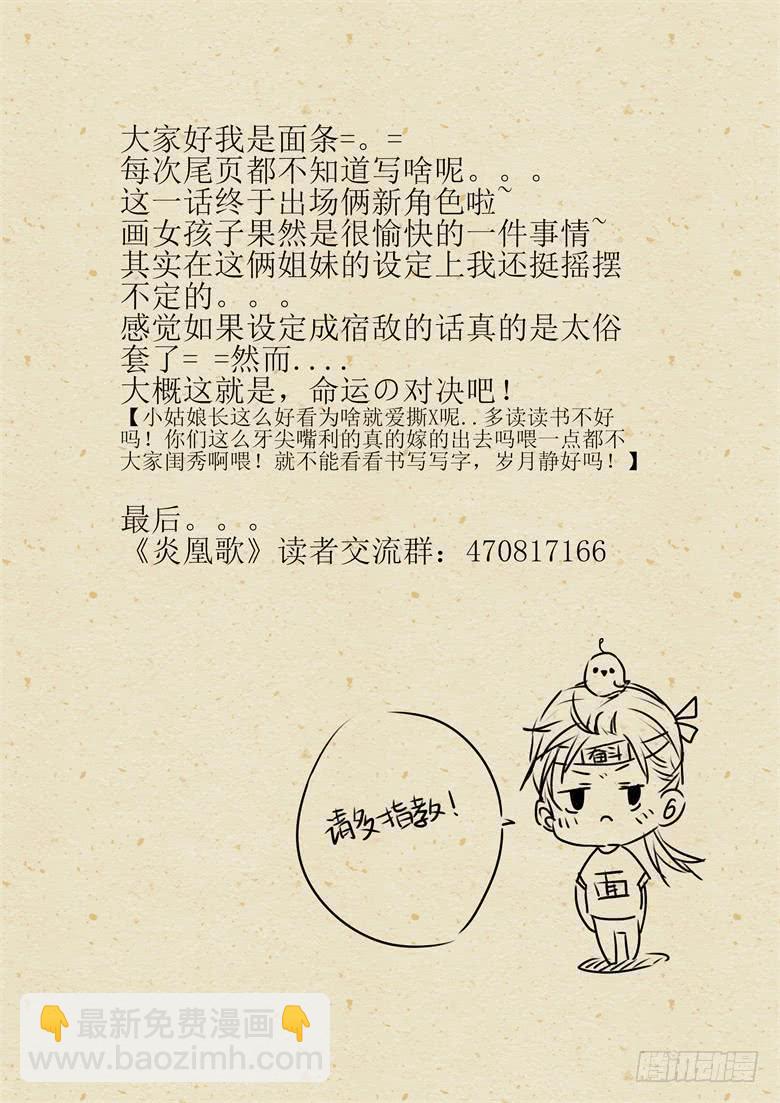 大家好我是面条=。=
每次尾页都不知道写啥呢。。。
这一话终于出场俩新角色啦~
画女孩子果然是很愉快的一件事情~
其实在这俩姐妹的设定上我还挺摇摆
不定的。。。
感觉如果设定成宿敌的话真的是太俗
套了= =然而....
大概这就是，命运の对决吧！
【小姑娘长这么好看为啥就爱撕X呢..多读读书不好
吗！你们这么牙尖嘴利的真的嫁的出去吗喂一点都不
大家闺秀啊喂！就不能看看书写写字，岁月静好吗！】
最后。。。
《炎凰歌》读者交流群：470817166
奋斗
请多指教！
面
👇最新免费漫画👇
www.baozimh.com
腾讯动漫